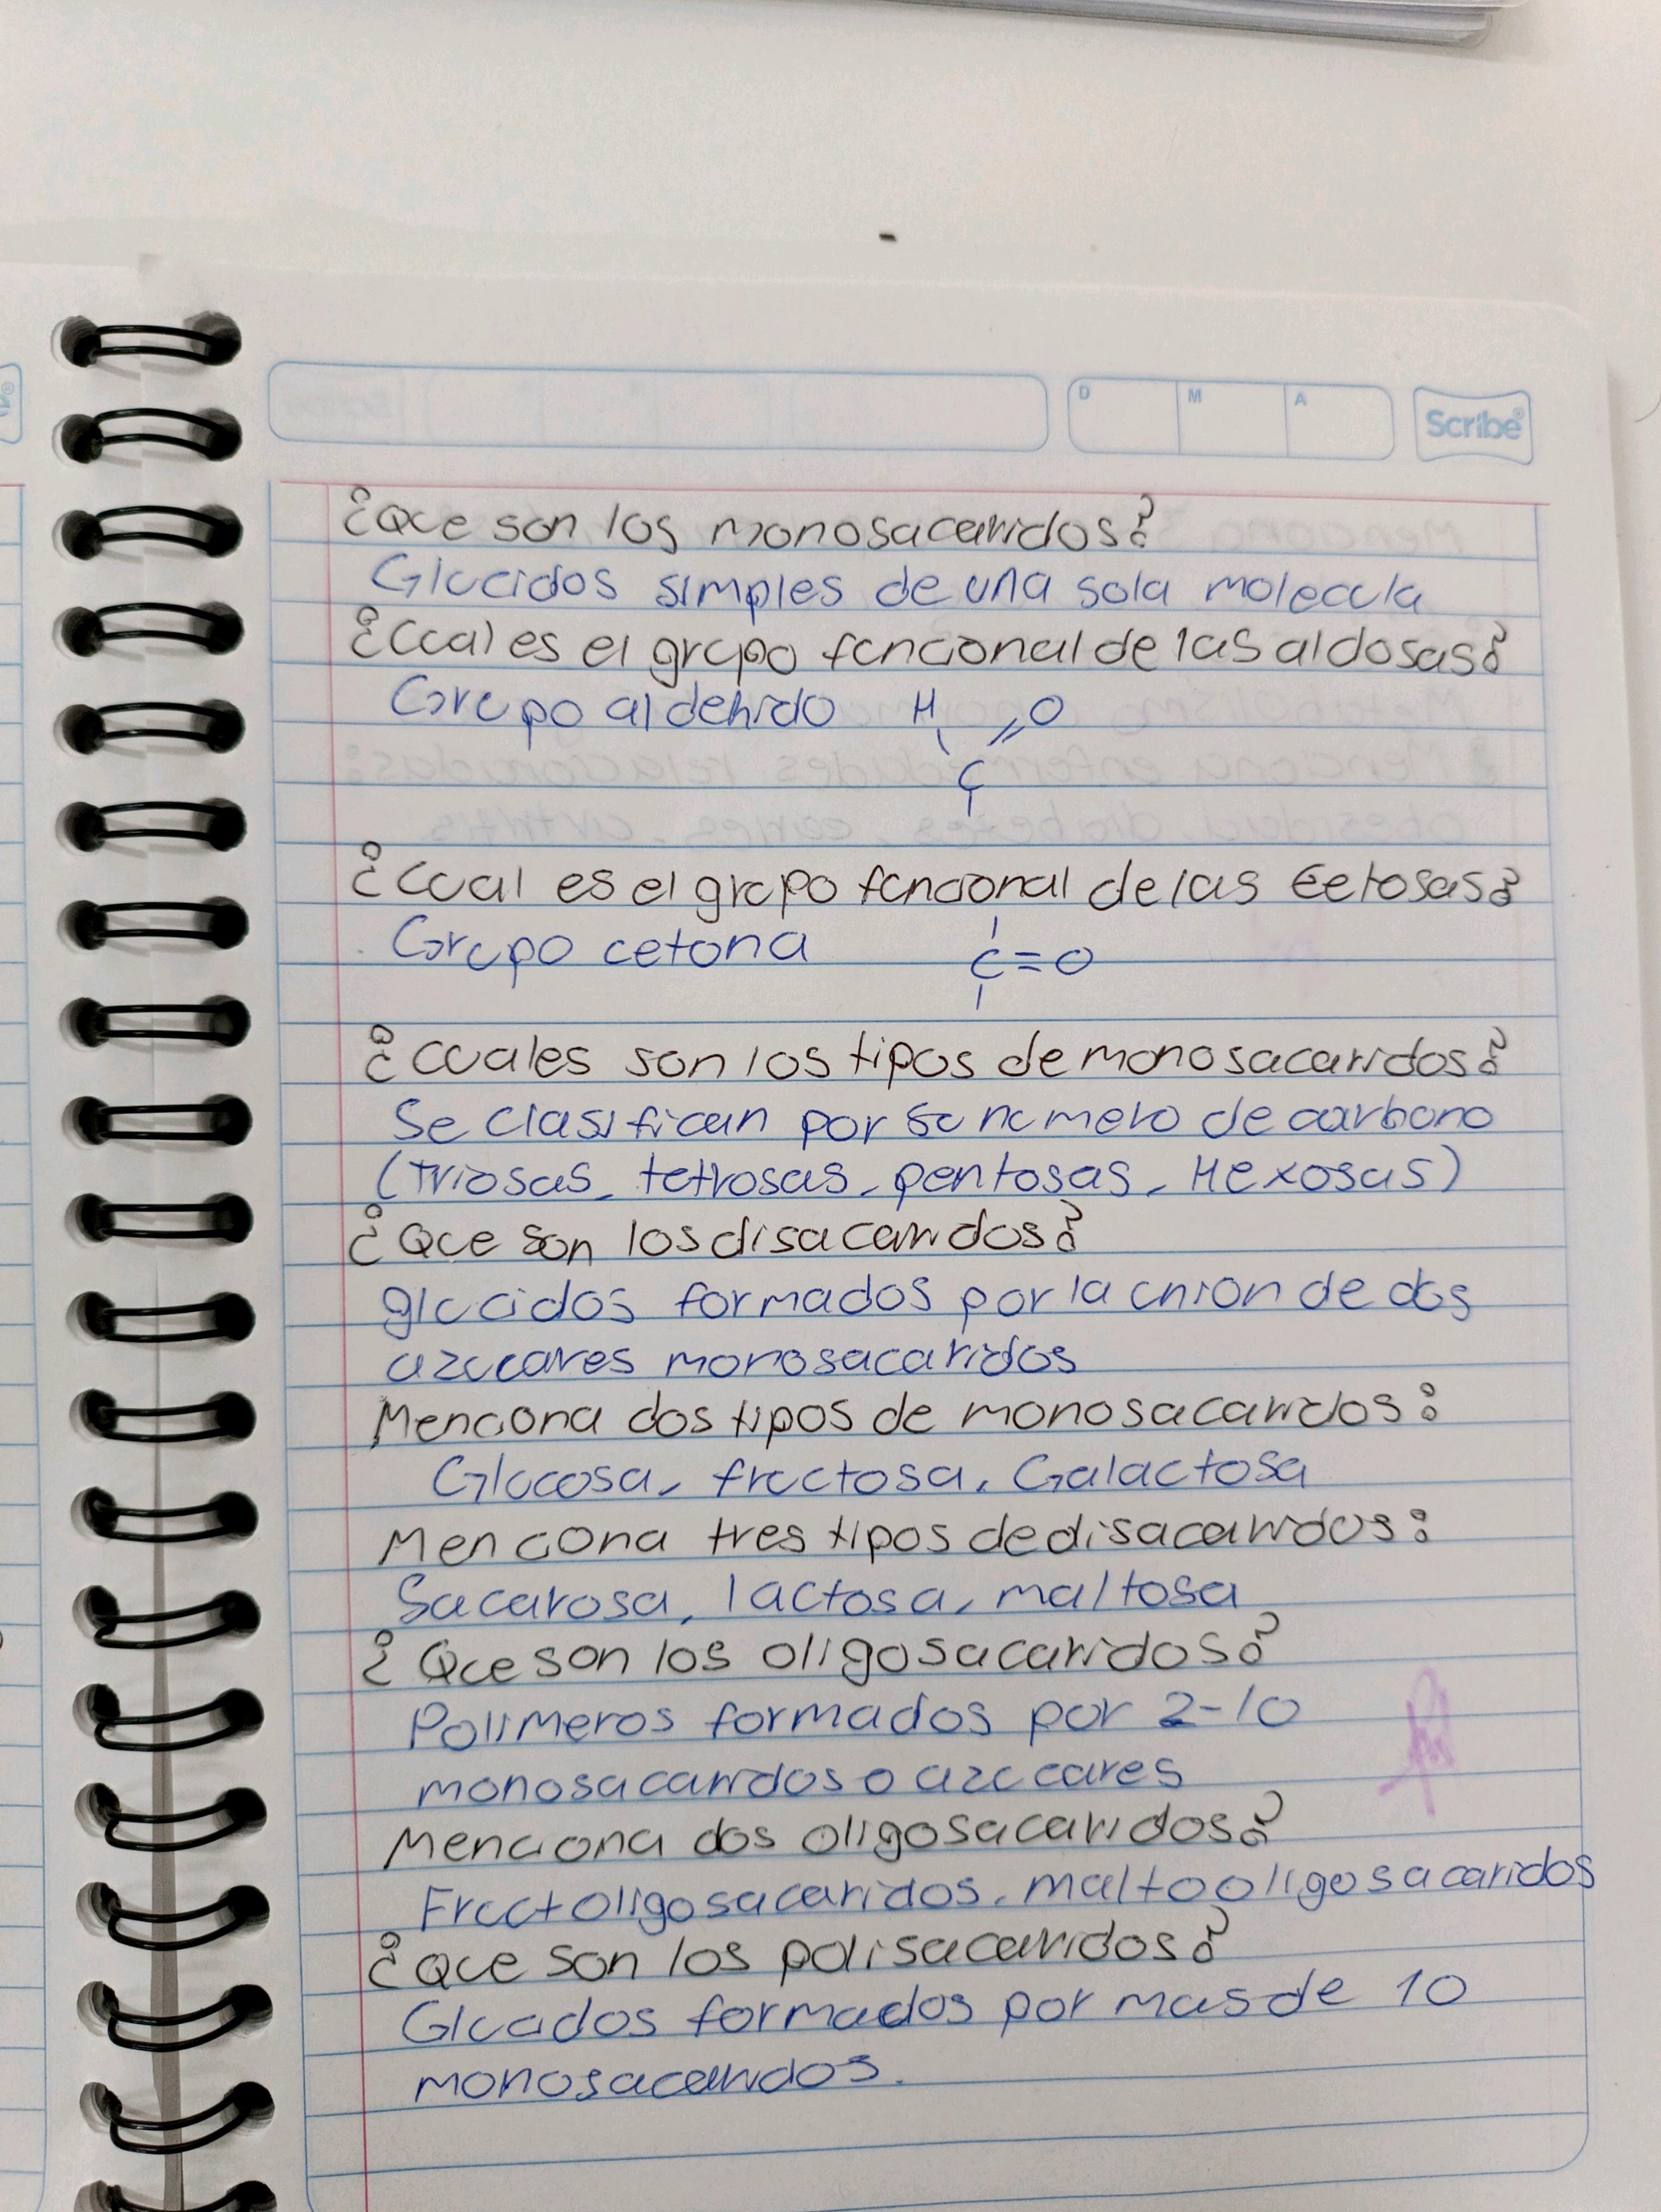 D M A Scribe®
¿Que son los monosacaridos?
Glucidos simples de una sola molecula
¿Cual es el grupo funcional de las aldosas?
Grupo aldehido H O
C
¿Cual es el grupo funcional de las cetosas?
Grupo cetona C=O
¿Cuales son los tipos de monosacaridos?
Se clasifican por su numero de carbono
(triosas, tetrosas, pentosas, Hexosas)
¿Que son los disacaridos?
glucidos formados por la union de dos
azucares monosacaridos
Menciona dos tipos de monosacaridos:
Glucosa, fructosa, Galactosa
Menciona tres tipos de disacaridos:
Sacarosa, lactosa, maltosa
¿Que son los oligosacaridos?
Polimeros formados por 2-10
monosacaridos o azucares
Menciona dos oligosacaridos?
Fructoligosacaridos, maltooligosacaridos
¿Que son los polisacaridos?
Glucidos formados por mas de 10
monosacaridos.